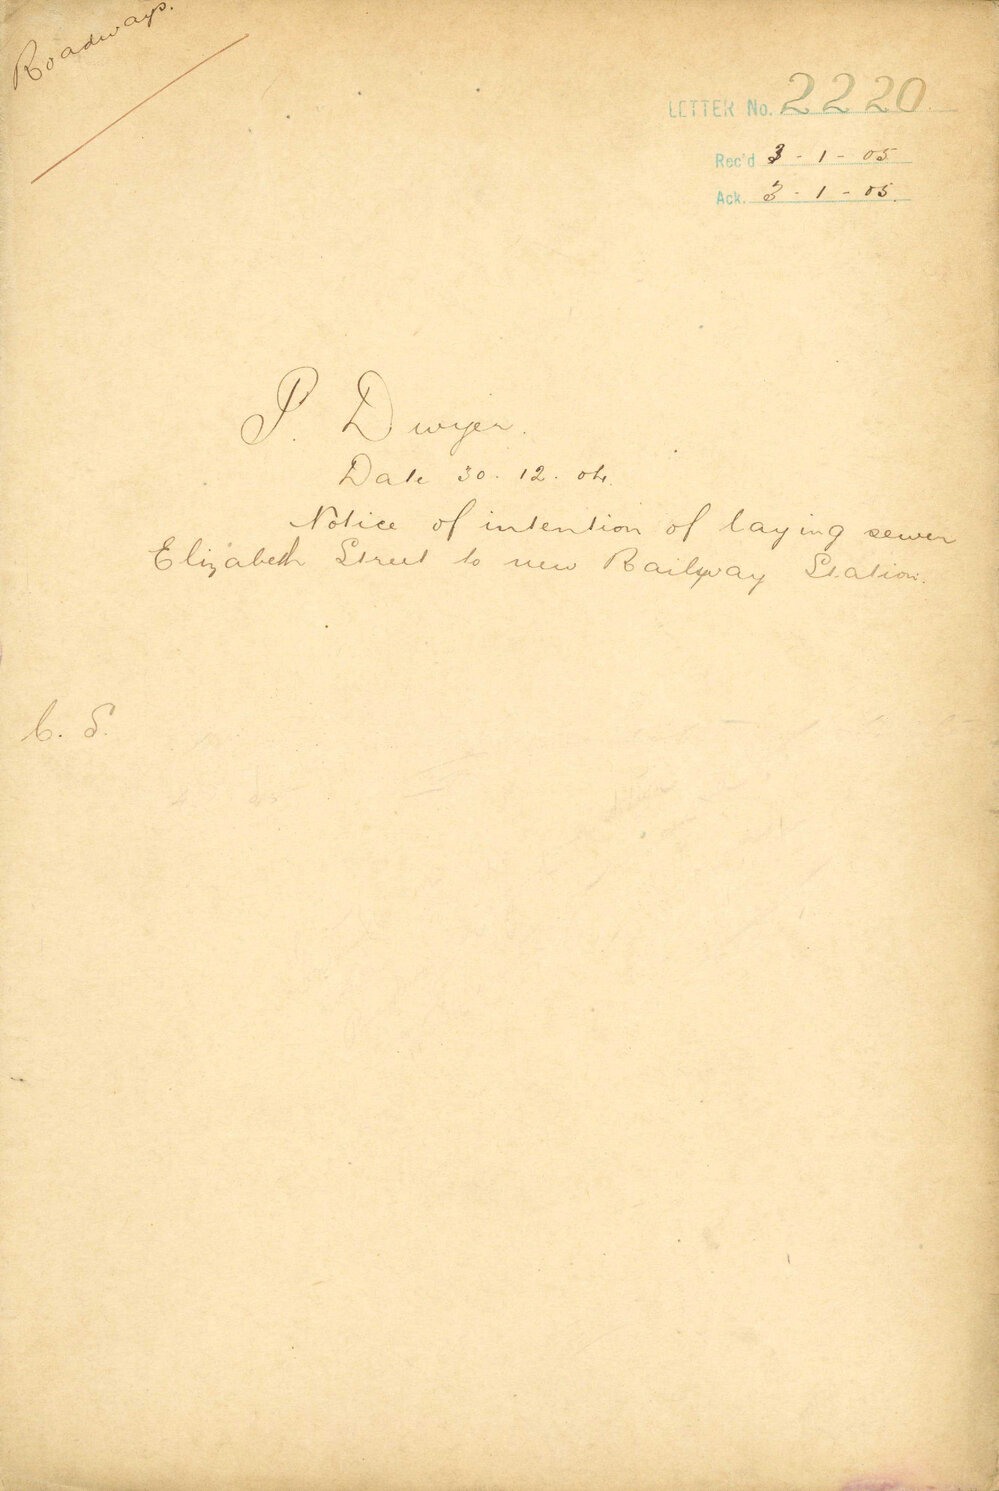 Roadways.
LETTER No. 2220
Rec'd 3-1-05
Ack. 3-1-05.
P. Dwyer.
Date 30.12.04.
Notice of intention of laying sewer
Elizabeth Street to new Railway Station.
C. S.